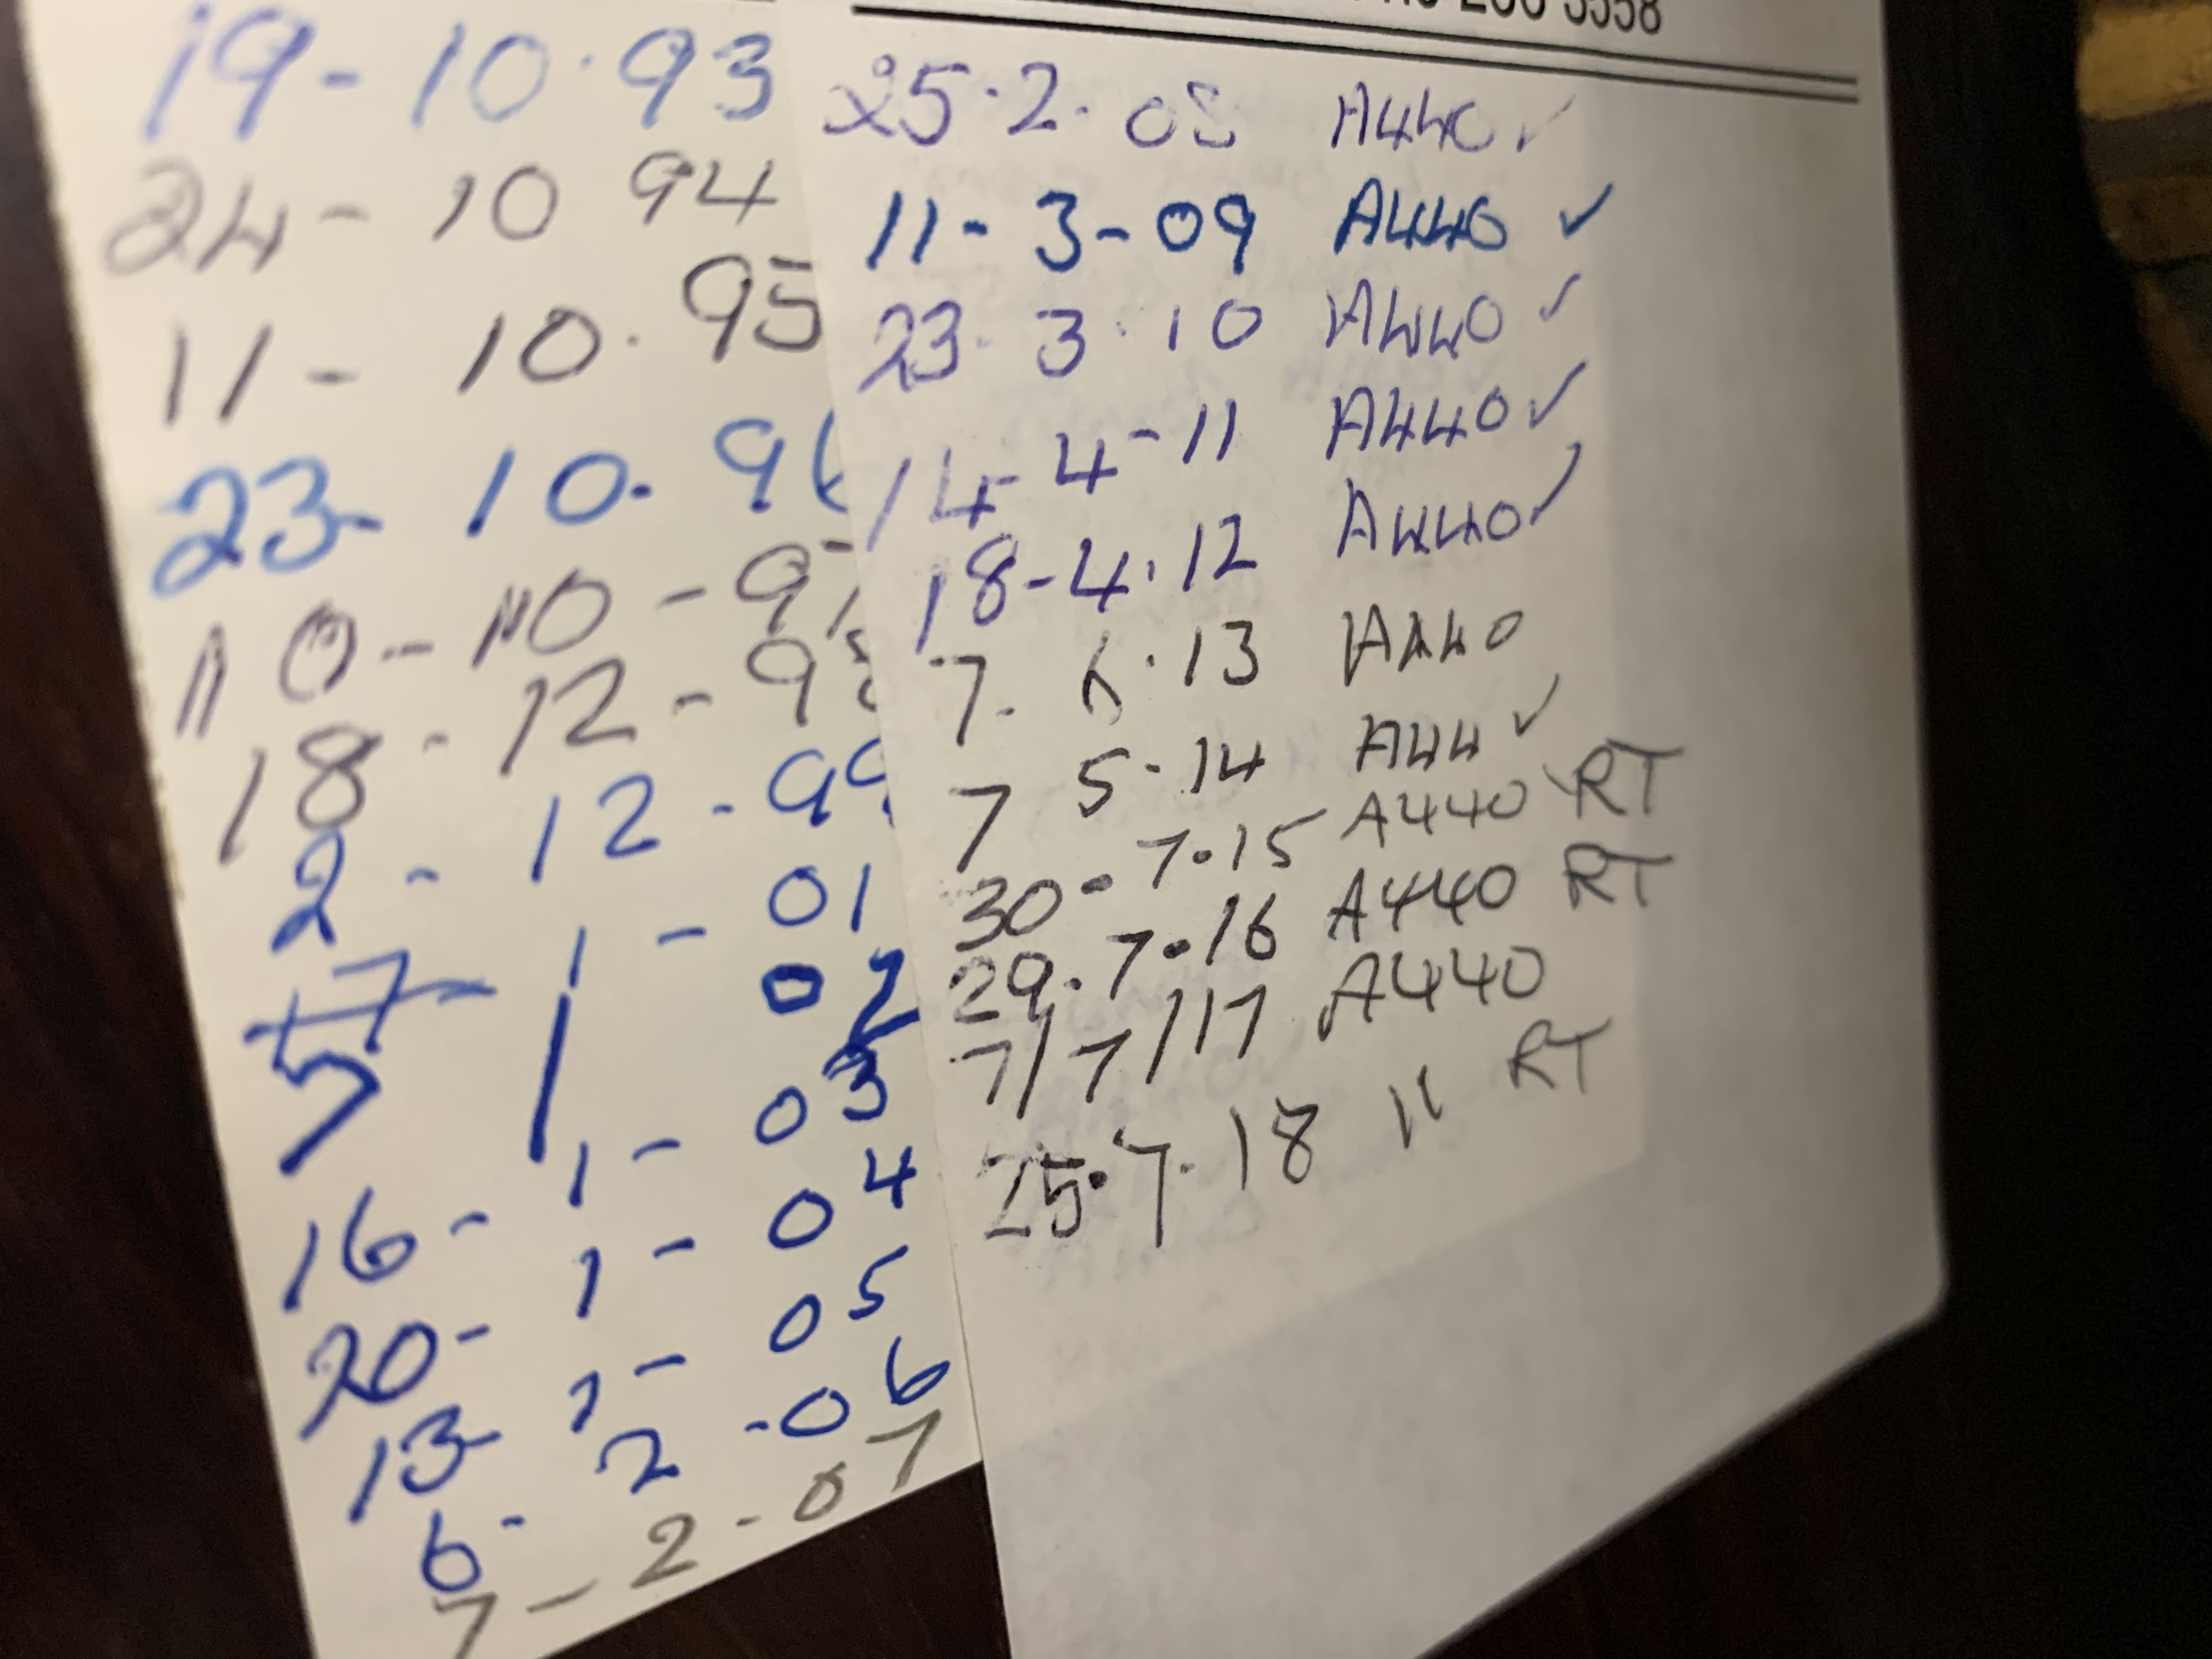 19-10.93
24-10 94
11-10.95
23-10.96
10-10-97
18-12-98
2-12-99
7-1-01
7 1 02
16-1-03
20-1-04
13-1-05
6-2-06
7-2-07
3558
25.2.08 A440 ✓
11-3-09 A440 ✓
23.3.10 A440 ✓
14-4-11 A440 ✓
18-4.12 A440 ✓
7.6.13 A440
7 5-14 A44 ✓
30-7.15 A440 RT
29.7.16 A440 RT
7/7/17 A440
25.7.18 " RT